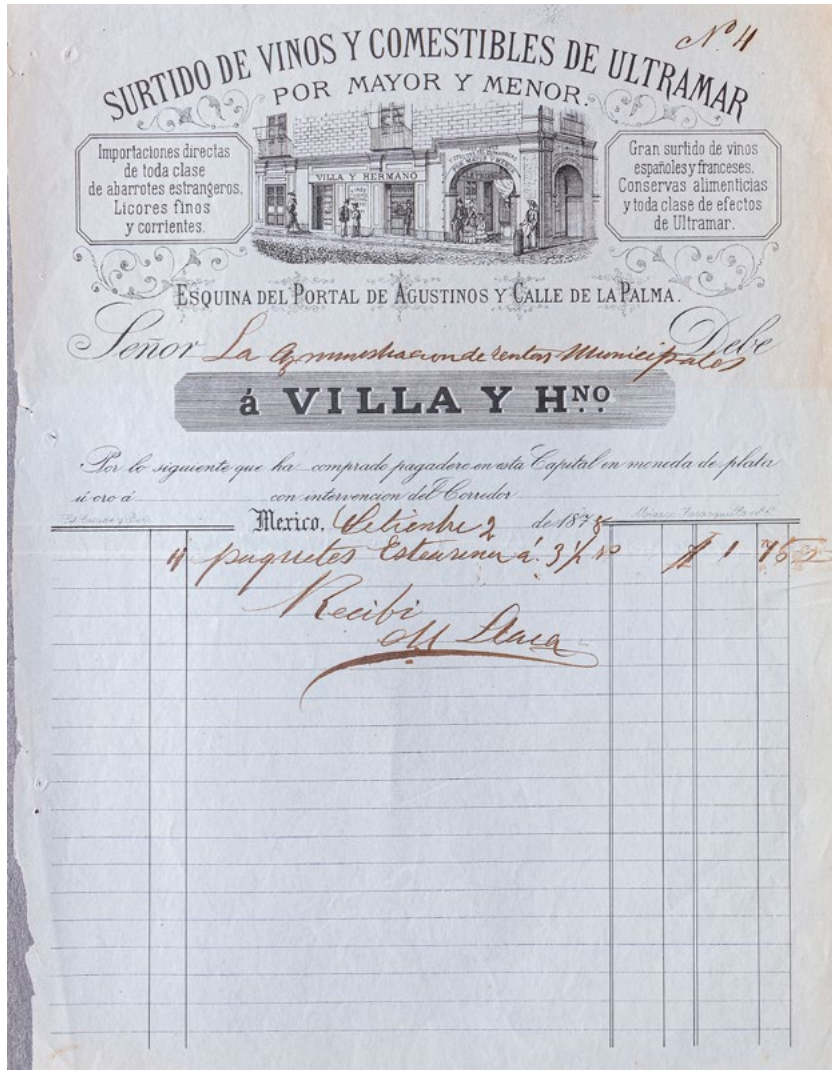 Nº 4
SURTIDO DE VINOS Y COMESTIBLES DE ULTRAMAR
POR MAYOR Y MENOR.
Importaciones directas
de toda clase
de abarrotes estrangeros.
Licores finos
y corrientes.
VILLA Y HERMANO
Gran surtido de vinos
españoles y franceses.
Conservas alimenticias
y toda clase de efectos
de Ultramar.
ESQUINA DEL PORTAL DE AGUSTINOS Y CALLE DE LA PALMA.
Señor La Administracion de rentas Municipales Debe
á VILLA Y HNO.
Por lo siguiente que ha comprado pagadero en esta Capital en moneda de plata
ú oro á con intervencion del Corredor
Mexico, Setiembre 2 de 1878
4 paquetes Estearina á 3½ $ 1 75
Recibi
M